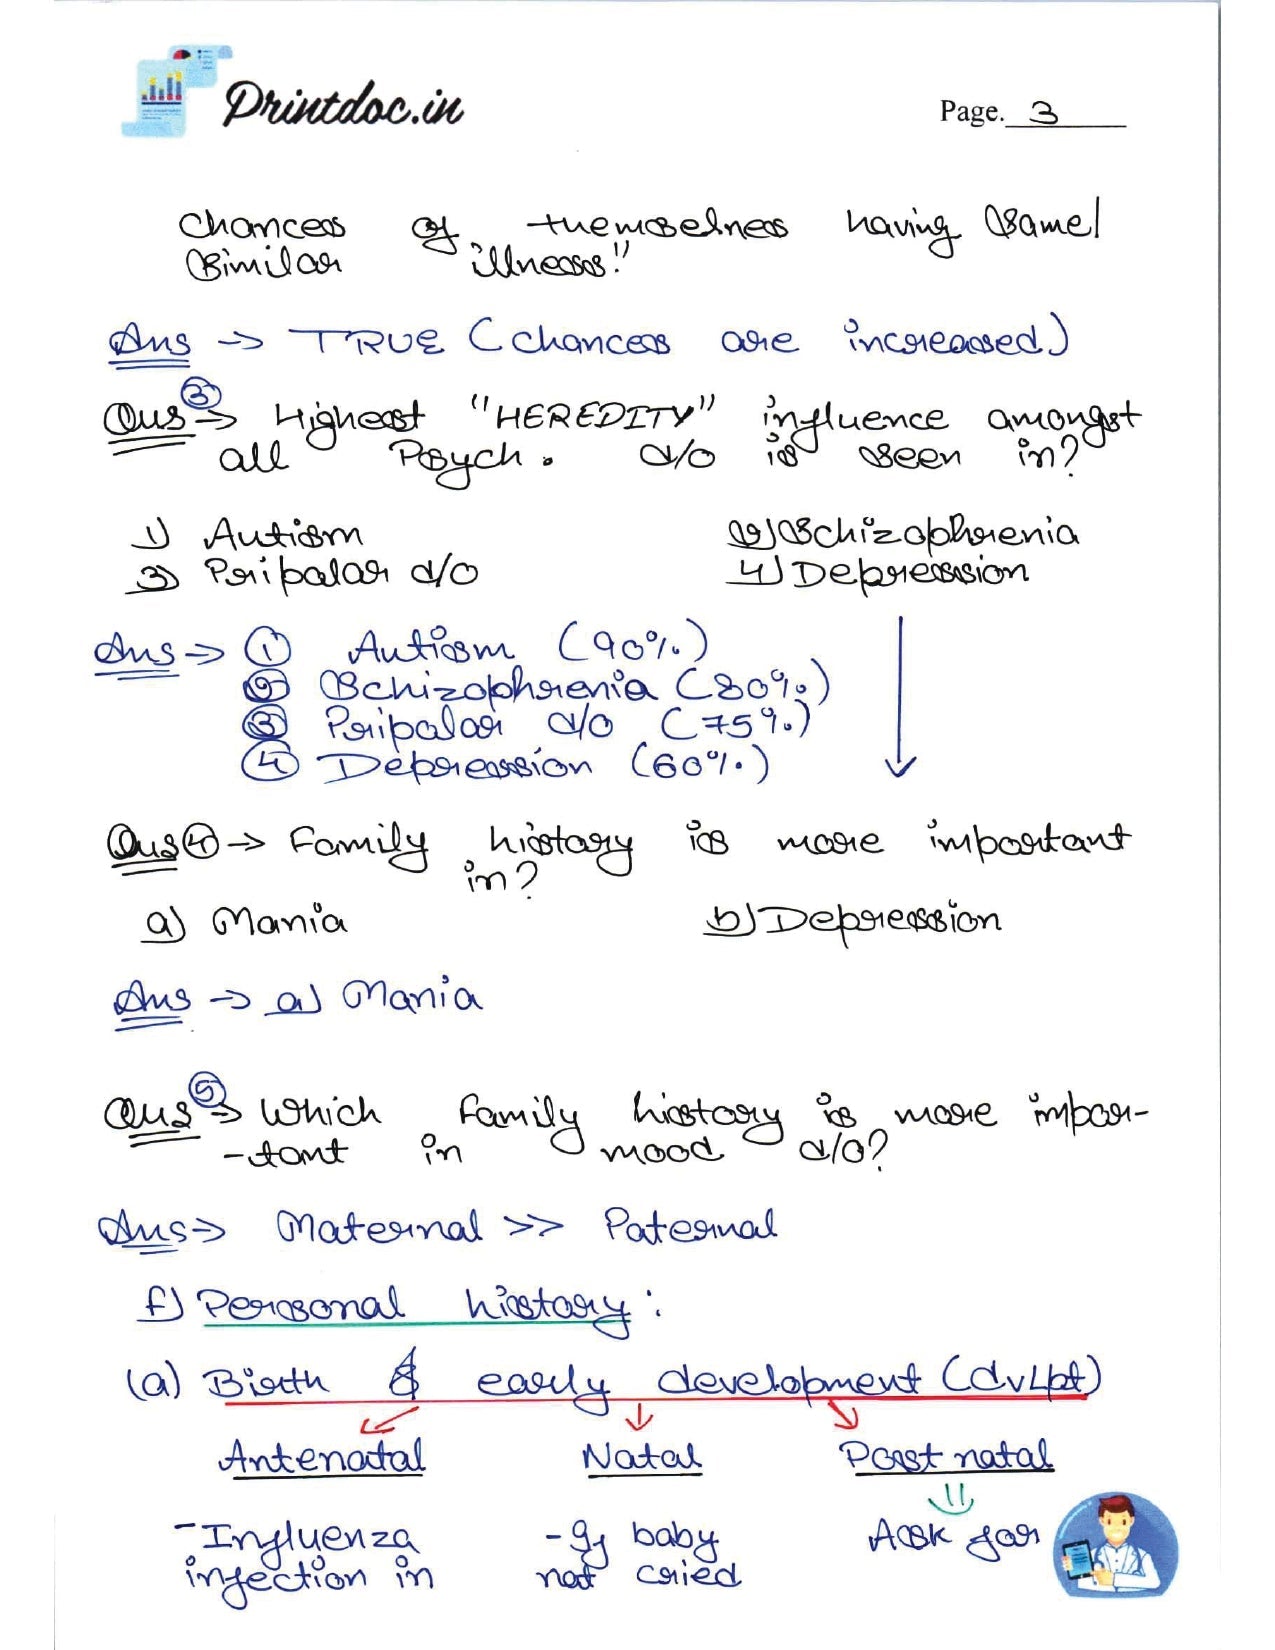 Printdoc.in
Page. 3
Chances of themselves having same/
similar illnesses!!
Ans → TRUE (chances are increased)
Ques ③ → Highest "HEREDITY" influence amongst
all Psych. d/o is seen in?
1) Autism 2) Schizophrenia
3) Bipolar d/o 4) Depression
Ans → ① Autism (90%)
② Schizophrenia (80%)
③ Bipolar d/o (75%)
④ Depression (60%)
Ques ④ → Family history is more important
in?
a) Mania b) Depression
Ans → a) Mania
Ques ⑤ → Which family history is more impor-
-tant in mood d/o?
Ans → Maternal >> Paternal
f) Personal history:
(a) Birth & early development (dvlpt)
Antenatal Natal Post natal
- Influenza - If baby Ask for
infection in not cried